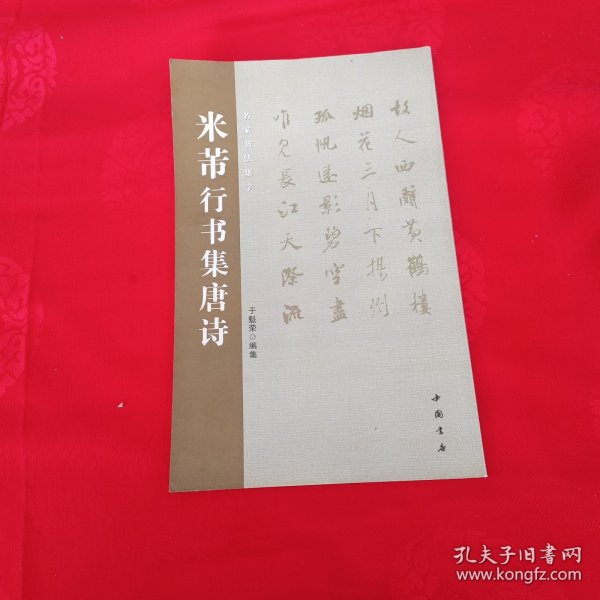 故人西辭黄鶴樓
烟花三月下揚州
孤帆遠影碧空盡
唯見長江天際流
名家书法集字
米芾行书集唐诗
于魁荣◎编集
中国书店
孔夫子旧书网
www.kongfz.com